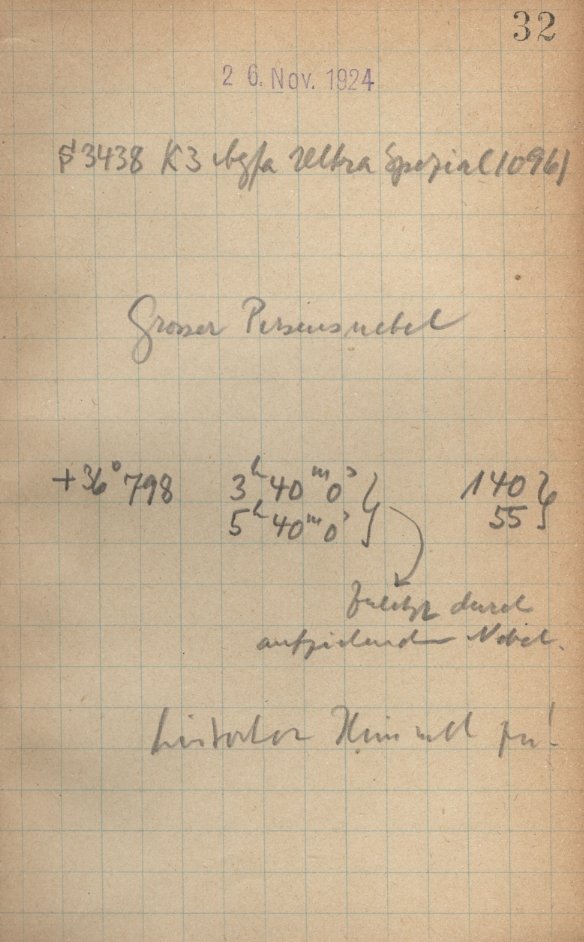 32
26. Nov. 1924
3438 K3 Agfa Ultra Spezial (1096)
Grosser Perseusnebel
+36° 798 3h 40m 0s } 140 }
5h 40m 0s } 55 }
Zuletzt durch
aufziehenden Nebel.
Himmel zu!